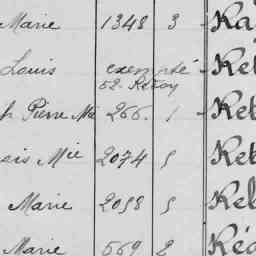 Marie 1348 3 Ka
Louis exempté Ret
52 Retoy
Pierre Mie 266 1 Ret
Mie 2074 5 Ret
Marie 2058 5 Rel
Marie 569 2 Réc